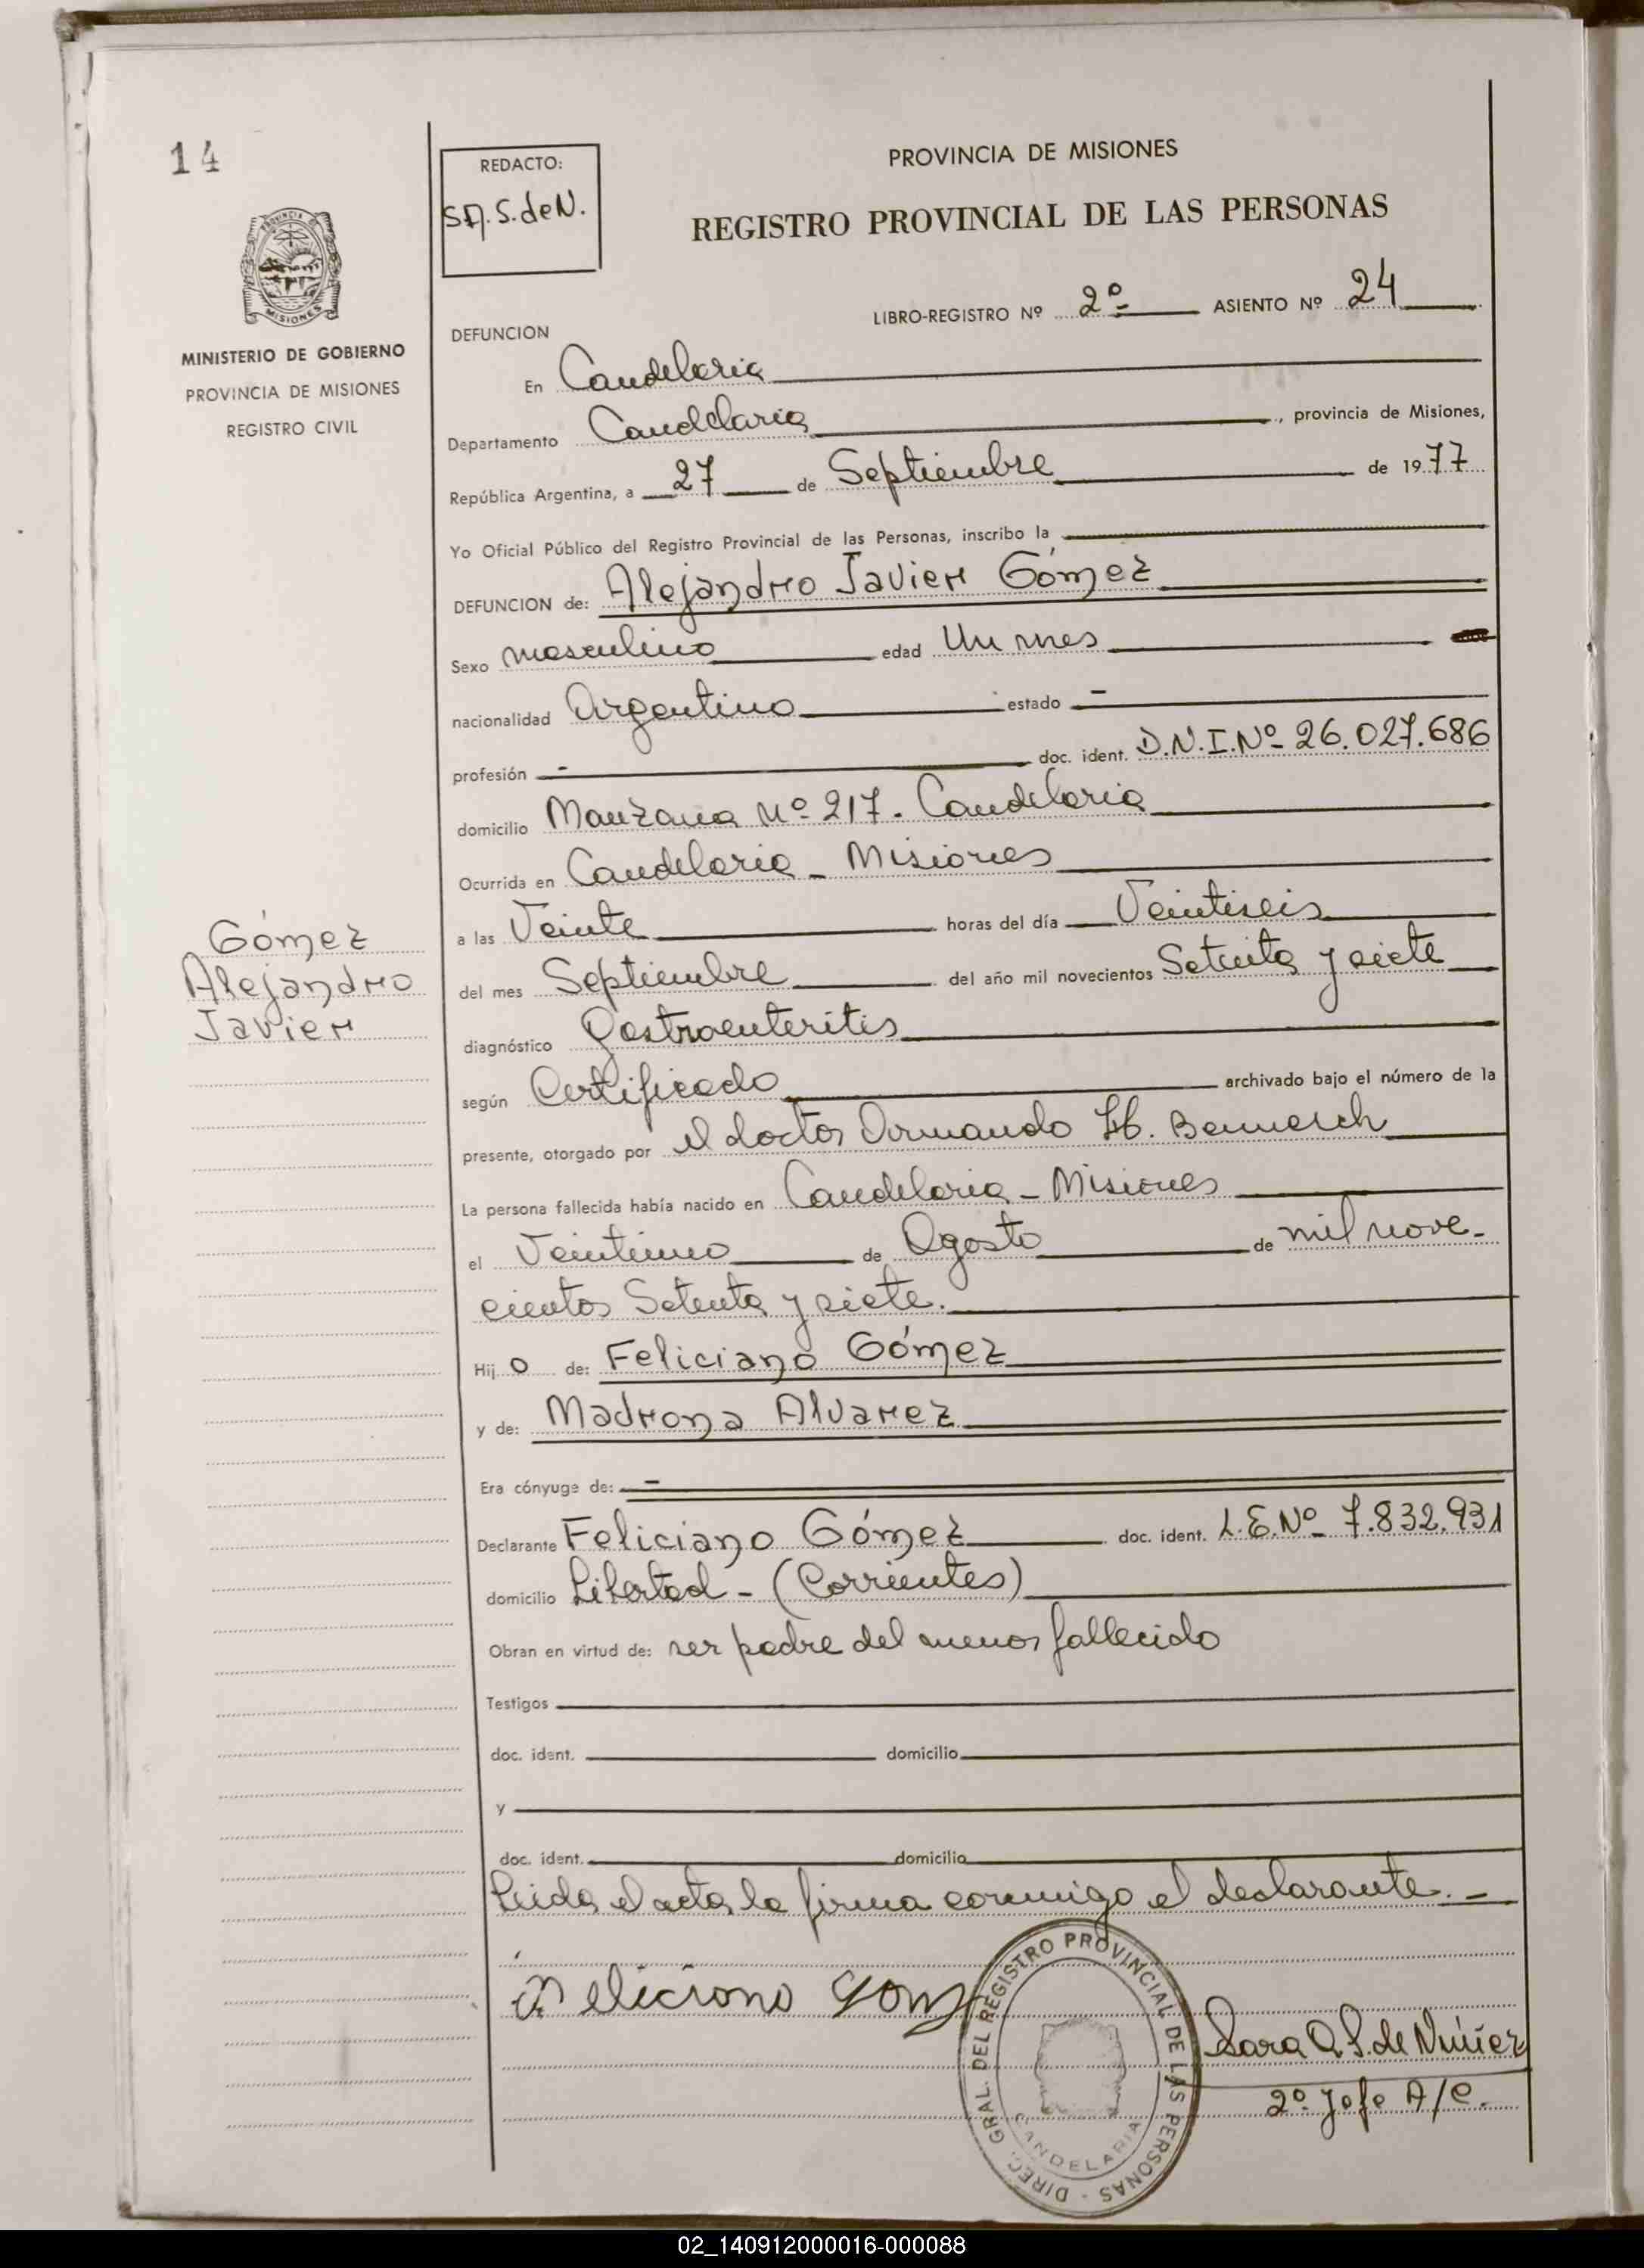 14
REDACTO:
S.A.S.deN.
PROVINCIA DE MISIONES
REGISTRO PROVINCIAL DE LAS PERSONAS
LIBRO-REGISTRO Nº 2º ASIENTO Nº 24
PROVINCIA DE MISIONES
MINISTERIO DE GOBIERNO
PROVINCIA DE MISIONES
REGISTRO CIVIL
DEFUNCION
En Candelaria
Departamento Candelaria, provincia de Misiones,
República Argentina, a 27 de Septiembre de 1977
Yo Oficial Público del Registro Provincial de las Personas, inscribo la
DEFUNCION de: Alejandro Javier Gómez
Sexo masculino edad Un mes
nacionalidad Argentina estado -
profesión - doc. ident. D.N.I.Nº 26.027.686
domicilio Manzana Nº 217. Candelaria
Ocurrida en Candelaria - Misiones
a las Veinte horas del día Veintiseis
del mes Septiembre del año mil novecientos Setenta y siete
diagnóstico Gastroenteritis
según Certificado archivado bajo el número de la
presente, otorgado por el doctor Armando H. Bennerch
La persona fallecida había nacido en Candelaria - Misiones
el Veintiuno de Agosto de mil nove-
cientos Setenta y siete.
Hijo de: Feliciano Gómez
y de: Madrona Alvarez
Era cónyuge de: -
Declarante Feliciano Gómez doc. ident. L.E.Nº 7.832.931
domicilio Libertad - (Corrientes)
Obran en virtud de: ser padre del menor fallecido
Testigos
doc. ident. domicilio
y
doc. ident. domicilio
Leida el acta, la firma conmigo el declarante.-
Gómez
Alejandro
Javier
Feliciano Gom
DIREC. GRAL. DEL REGISTRO PROVINCIAL DE LAS PERSONAS -
CANDELARIA
Sara A. S. de Núñez
2º Jefe A/C.
02_140912000016-000088